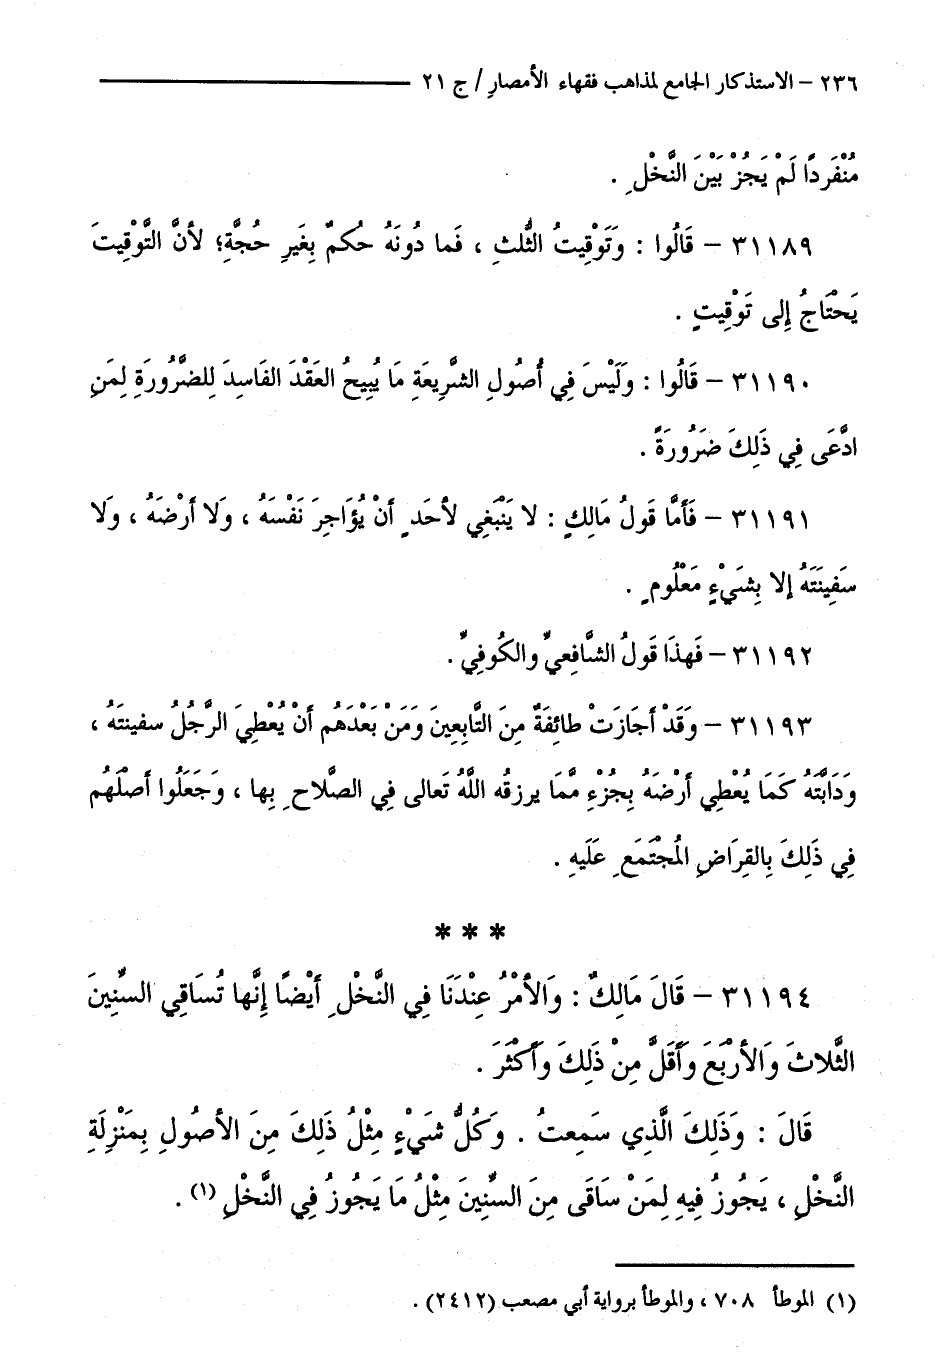 ٢٣٦ – الاستذكار الجامع لمذاهب فقهاء الأمصار / ج ٢١
مُنْفَرِدًا لَمْ يَجُزْ بَيْنَ النَّخْلِ .
٣١١٨٩ – قَالُوا : وَتَوْقِيتُ الثُّلثِ ، فَما دُونَهُ حُكمٌ بِغَيرِ حُجَّةٍ؛ لأنَّ التَّوْقِيتَ
يَحْتَاجُ إِلى تَوْقِيتٍ .
٣١١٩٠ – قَالُوا : وَلَيْسَ فِي أُصُولِ الشَّرِيعَةِ مَا يُبِيحُ العَقْدَ الفَاسِدَ لِلضَّرُورَةِ لِمَنِ
ادَّعَى فِي ذَلِكَ ضَرُورَةً .
٣١١٩١ – فَأمَّا قَولُ مَالِكٍ : لا يَنْبَغِي لأحَدٍ أنْ يُؤَاجِرَ نَفْسَهُ ، وَلا أرْضَهُ ، وَلا
سَفِينَتَهُ إلا بِشَيْءٍ مَعْلُومٍ .
٣١١٩٢ – فَهذَا قَولُ الشَّافِعيِّ والكُوفِيِّ .
٣١١٩٣ – وَقَدْ أجَازَتْ طائِفَةٌ مِنَ التَّابِعِينَ وَمَنْ بَعْدَهُم أنْ يُعْطِيَ الرَّجُلُ سفينتَهُ ،
وَدَابَّتَهُ كَمَا يُعْطِي أرْضَهُ بِجُزْءٍ مَّمَا يرزقُه اللَّهُ تَعالى فِي الصَّلاحِ بِها ، وَجَعَلُوا أصْلَهُم
فِي ذَلِكَ بِالقِرَاضِ المُجْتَمَعِ عَلَيهِ .
* * *
٣١١٩٤ – قَالَ مَالِكٌ : وَالأمْرُ عِنْدَنَا فِي النَّخْلِ أيْضًا إنَّها تُسَاقِي السِّنِينَ
الثَّلاثَ وَالأرْبَعَ وَأَقَلَّ مِنْ ذَلِكَ وَأَكْثَرَ .
قَالَ : وَذَلِكَ الَّذِي سَمِعتُ . وَكُلُّ شَيْءٍ مِثْلُ ذَلِكَ مِنَ الأصُولِ بِمَنْزِلَةِ
النَّخْلِ ، يَجُوزُ فِيهِ لِمَنْ سَاقَى مِنَ السِّنِينَ مِثْلُ مَا يَجُوزُ فِي النَّخْلِ (١) .
(١) الموطأ ٧٠٨ ، والموطأ برواية أبي مصعب (٢٤١٢) .